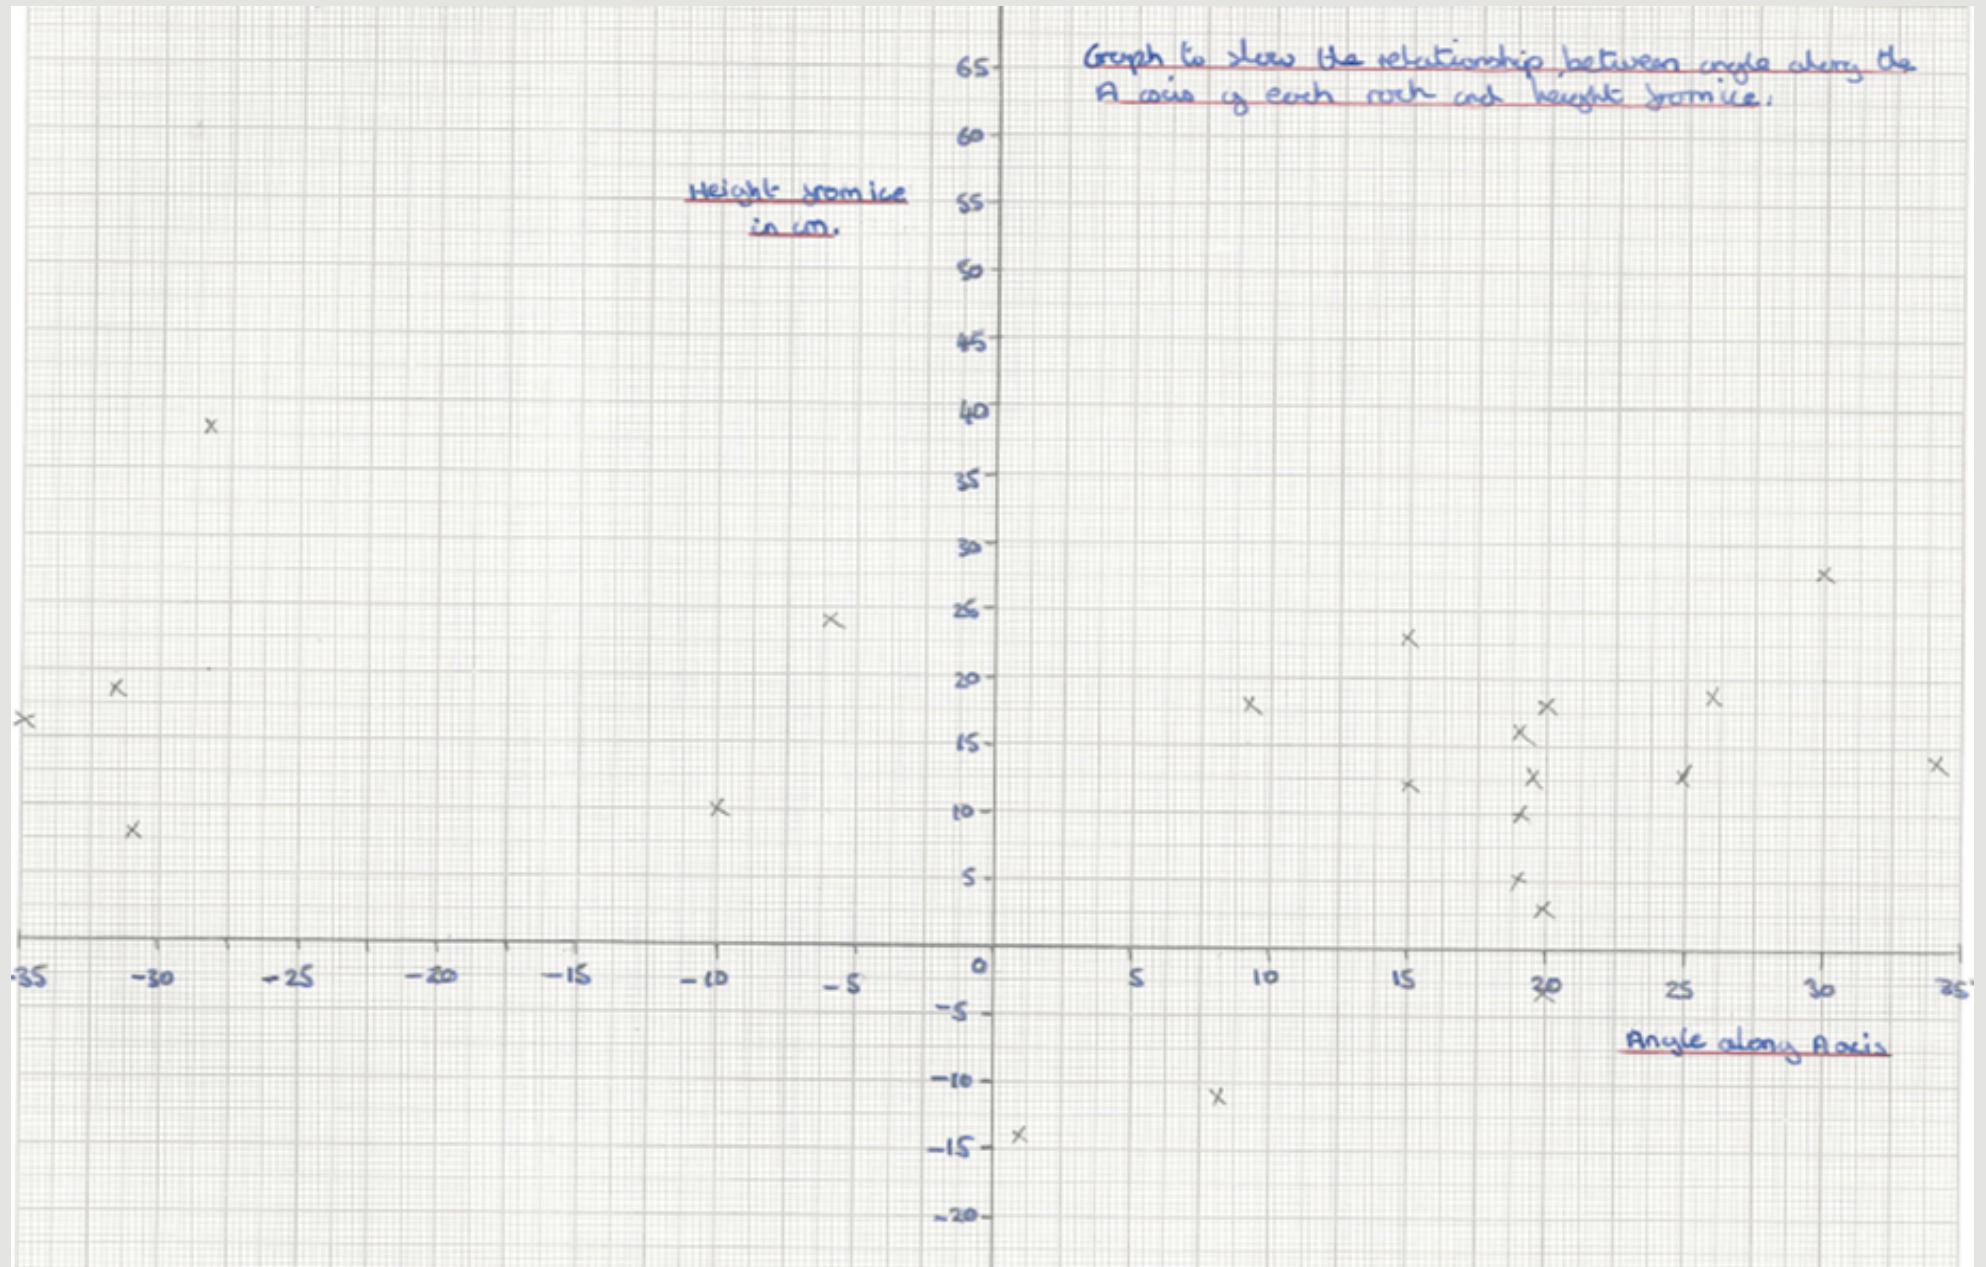 Graph to show the relationship between angle along the
A axis of each rock and height from ice.
65
60
Height from ice
in cm.
55
50
45
40
35
30
25
20
15
10
5
-35 -30 -25 -20 -15 -10 -5 0 5 10 15 20 25 30 35
-5
Angle along A axis
-10
-15
-20